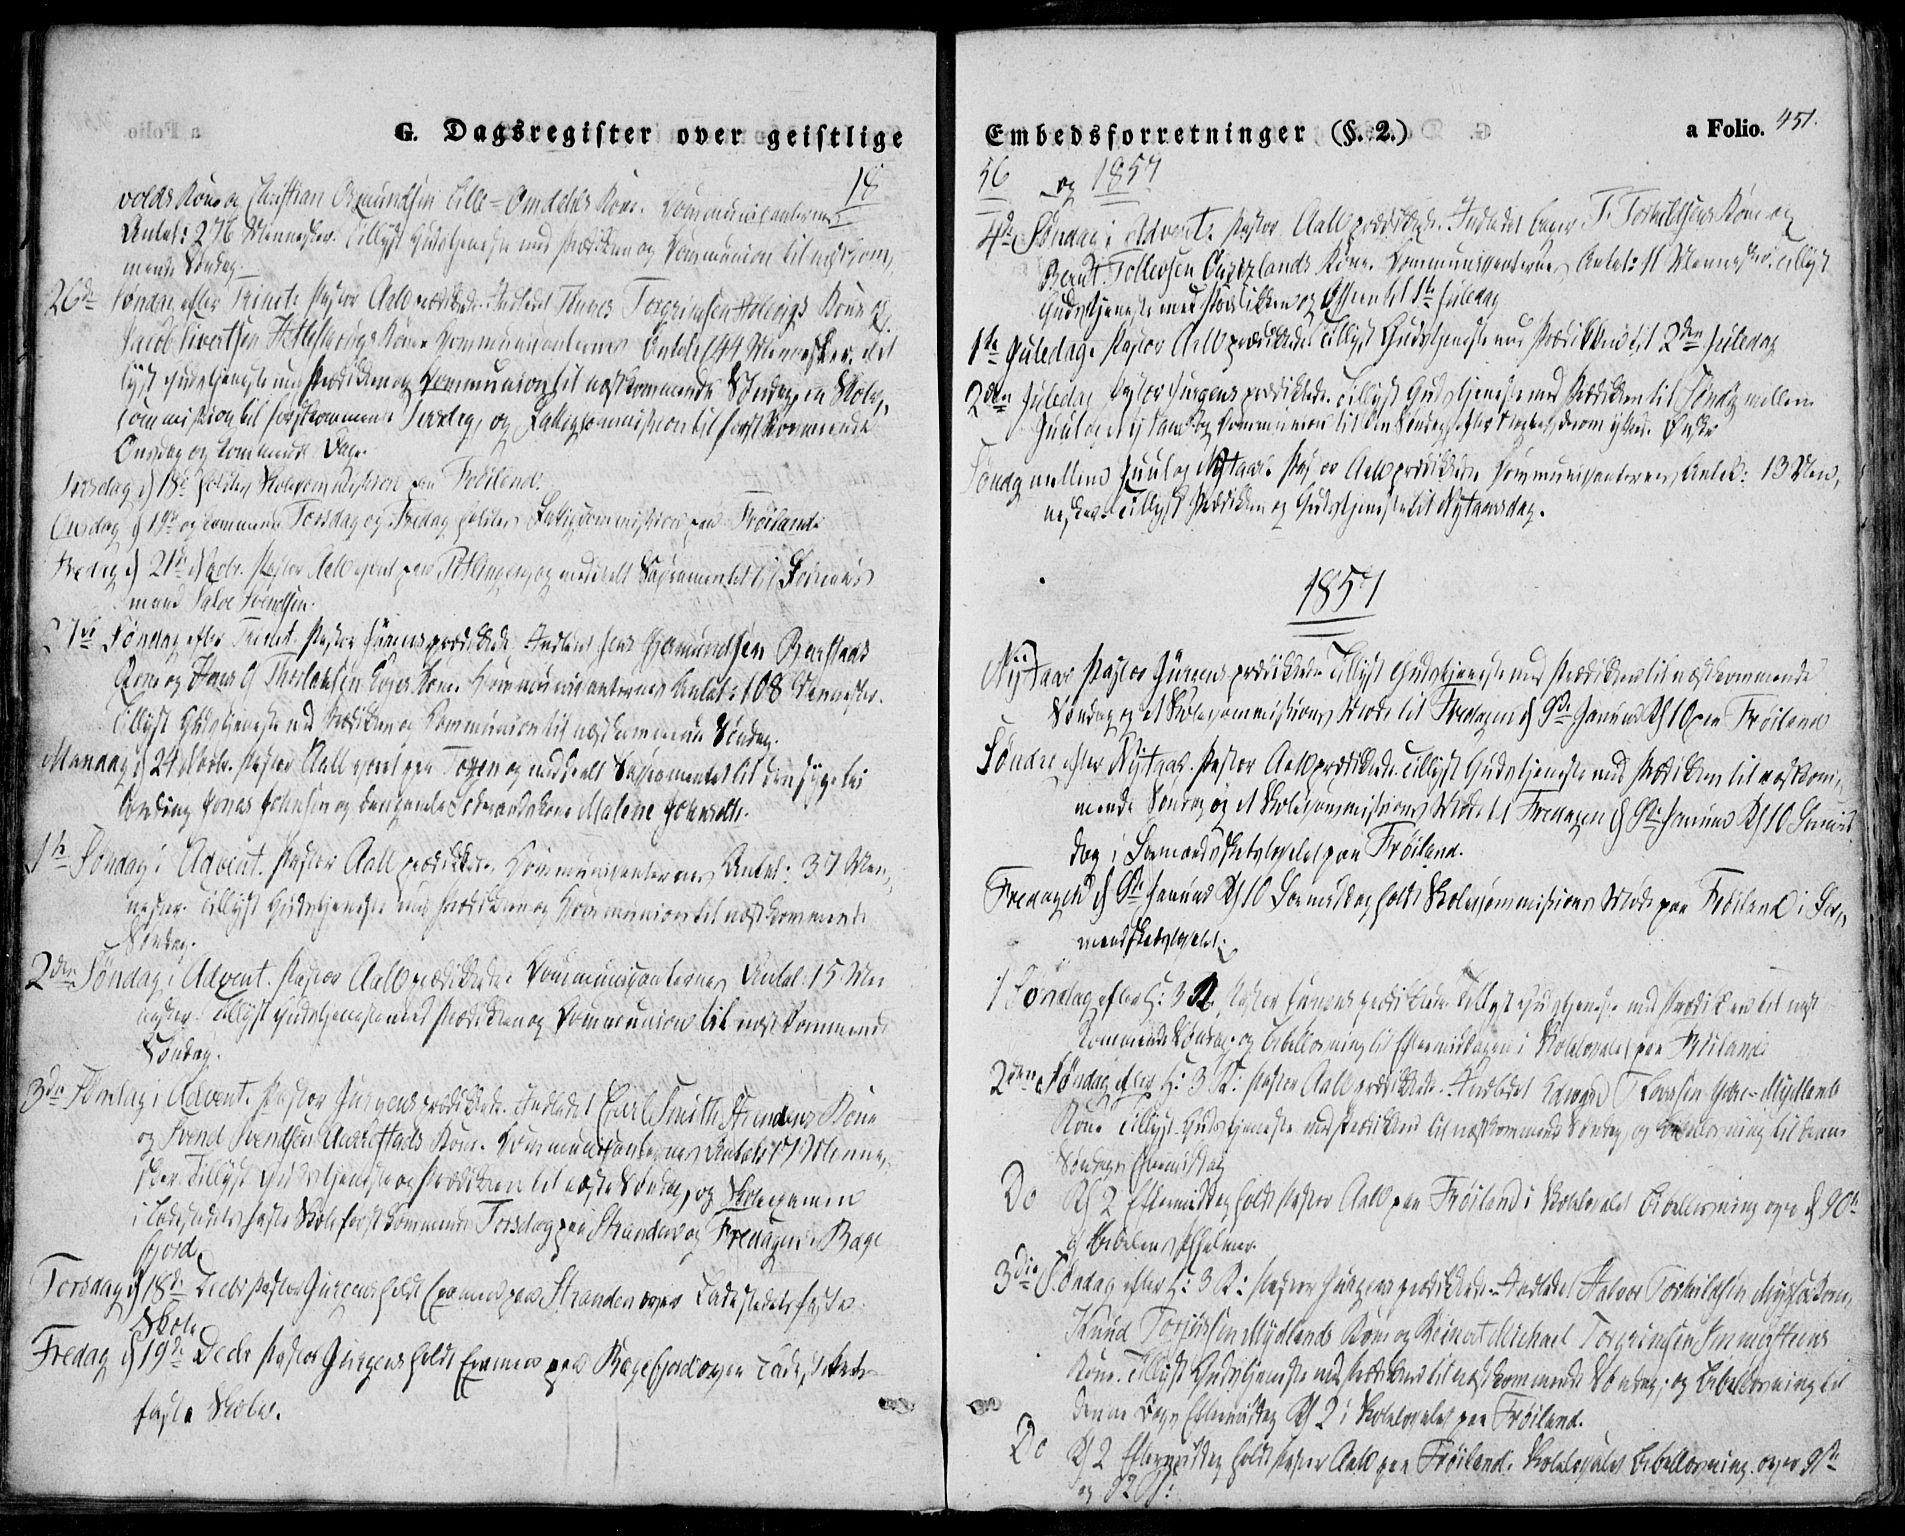 G. Dagsregister over geistlige
18
volds Kone og Christian Osmundsen Lille-Omdahls Kone. Communicanternes
Antal: 276 Mennesker. Tillyst Gudstjeneste med Prædiken og Communion til næstkom-
mende Søndag.
26de Søndag efter Trinit. Pastor Aall prædikede. Indledet Tønnes Torgrimsen Kone og
Jacob Sivertsen Kone. Communicanternes Antal 144 Mennesker. Til-
lyst Gudstjeneste med Prædiken og Communion til næstkommende Søndag, en Skole-
commission til førstkommende Tirsdag, og commission til førstkommende
Onsdag og kommende Dage.
Tirsdag d 18de holdtes Skolecommission paa Frøiland.
Onsdag d 19de og kommende Torsdag og Fredag holdtes commission paa Frøiland.
Fredag d 21de Novbr. Pastor Aall reist paa og meddeelt Sacramentet til
mand Salve Svendsen.
27de Søndag efter Trinit. Pastor Jürgens prædikede. Indledet Jens Gjermundsen
Kone og Hans G Thorlaksen Kone. Communicanternes Antal: 108 Mennesker.
Tillyst Gudstjeneste med Prædiken og Communion til næstkommende Søndag.
Mandag d 24 Novbr. Pastor Aall reist paa og meddeelt Sacramentet til den syge
Jonas Johnsen og den gamle Malene
1ste Søndag i Advent. Pastor Aall prædikede. Communicanternes Antal: 37 Men-
nesker. Tillyst Gudstjeneste med Prædiken og Communion til næstkommende
Søndag.
2den Søndag i Advent. Pastor Aall prædikede. Communicanternes Antal: 15 Men
nesker. Tillyst Gudstjeneste med Prædiken og Communion til næstkommende
Søndag.
3die Søndag i Advent. Pastor Jürgens prædikede. Indledet Carl Smith Strandens Kone
og Svend Svendsen Kone. Communicanternes Antal: 17 Menne-
sker. Tillyst Gudstjeneste og Prædiken til næste Søndag, og Skoleexamen
i Ladestedets faste Skole førstkommende Torsdag paa Stranden og Fredagen i Rage-
fjord.
Torsdag d 18de Decbr Pastor Jürgens holdt Examen paa Stranden over Ladestedets faste
Skole.
Fredag d 19de Decbr Pastor Jürgens holdt Examen paa Ragefjord over Ladestedets
faste Skole.
Embedsforretninger (§. 2.)
a Folio. 451.
56 og 1857
4de Søndag i Advent. Pastor Aall prædikede. Indledet T. Torkildsens Kone og
Berndt Tollevsen Kone. Communicanternes Antal: 11 Mennesker. Tillyst
Gudstjeneste med Prædiken og Offer til 1ste Juledag
1ste Juledag. Pastor Aall prædikede. Tillyst Gudstjeneste med Prædiken til 2den Juledag
2den Juledag Pastor Jürgens prædikede. Tillyst Gudstjeneste med Prædiken til Søndag mellem
Juul og Nytaar og Communion til den Søndag
Søndag mellem Juul og Nytaar. Pastor Aall prædikede. Communicanternes Antal: 13 Men-
nesker. Tillyst Prædiken og Gudstjeneste til Nytaarsdag.
1857
Nytaar Pastor Jürgens prædikede. Tillyst Gudstjeneste med Prædiken til næstkommende
Søndag og et Skolecommissions Møde til Fredagen d 9de Januar Kl 10 paa Frøiland
Søndag efter Nytaar. Pastor Aall prædikede. Tillyst Gudstjeneste med Prædiken til næstkom-
mende Søndag og et Skolecommissions Møde til Fredagen d 9de Januar Kl 10 Formid-
dag i Formandskabslocalet paa Frøiland.
Fredagen d 9de Januar Kl 10 Formiddag holdt Skolecommissions Møde paa Frøiland i For-
mandskabslocalet.
1 Søndag efter H: 3 K. Pastor Jürgens prædikede. Tillyst Gudstjeneste med Prædiken til næst
kommende Søndag og Bibellæsning til Eftermiddagen i Skolelocalet paa Frøiland.
2den Søndag efter H: 3 K: Pastor Aall prædikede. Indledet Edvard Øvre-Mydlands
Kone. Tillyst Gudstjeneste med Prædiken til næstkommende Søndag, og Bibellæsning til denne
Søndags Eftermiddag
Do Kl 2 Eftermiddag holdt Pastor Aall paa Frøiland i Skolelocalet Bibellæsning over d 90de
af Bibelens Psalmer.
3die Søndag efter H: 3 K: Pastor Jürgens prædikede. Indledet Halvor Torkildsen Kone,
Knud Torjussen Mydlands Kone og Reinert Michael Torgrimsen
Kone. Tillyst Gudstjeneste med Prædiken til næstkommende Søndag, og Bibellæsning til
denne Dags Eftermiddag Kl 2 i Skolelocalet paa Frøiland.
Do Kl 2 Eftermiddag holdt Pastor Aall paa Frøiland i Skolelocalet Bibellæsning over 91de
og 92 P: